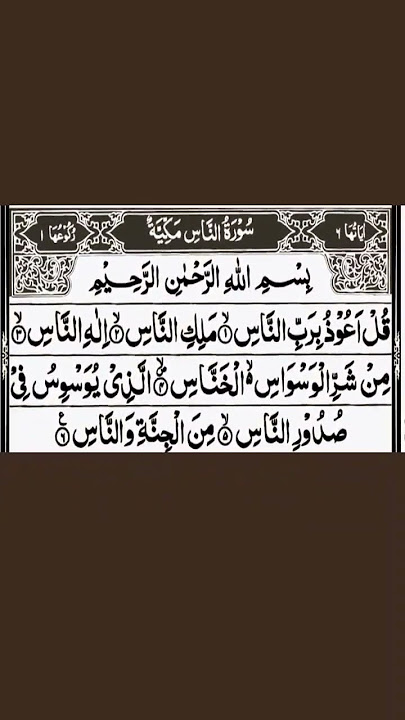 اٰيَاتُهَا ٦ سُوْرَةُ النَّاسِ مَكِّيَّةٌ رُكُوْعُهَا ١
بِسْمِ اللّٰهِ الرَّحْمٰنِ الرَّحِيْمِ
قُلْ اَعُوْذُ بِرَبِّ النَّاسِ ۙ﴿١﴾ مَلِكِ النَّاسِ ۙ﴿٢﴾ اِلٰهِ النَّاسِ ۙ﴿٣﴾
مِنْ شَرِّ الْوَسْوَاسِ ۙ۬ الْخَنَّاسِ ۪ۙ﴿٤﴾ الَّذِيْ يُوَسْوِسُ فِيْ
صُدُوْرِ النَّاسِ ۙ﴿٥﴾ مِنَ الْجِنَّةِ وَالنَّاسِ ﴿٦﴾ ع